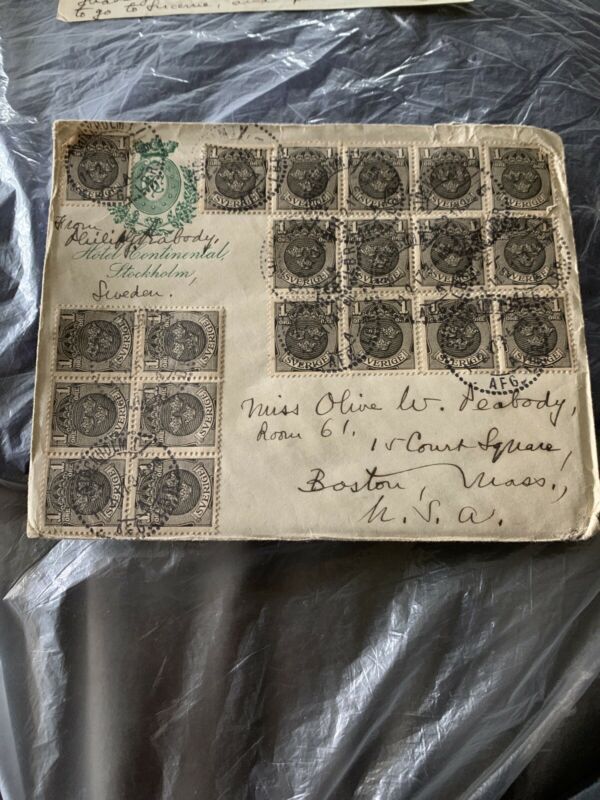 to go to Lucerne, and
From
Philip Peabody,
Hotel Continental,
Stockholm,
Sweden.
1 SVERIGE
1 SVERIGE
1 SVERIGE
1 SVERIGE
1 SVERIGE
1 SVERIGE
1 SVERIGE
1 SVERIGE
1 SVERIGE
1 SVERIGE
1 SVERIGE
1 SVERIGE
1 SVERIGE
1 SVERIGE
AFG.
1 SVERIGE
1 SVERIGE
1 SVERIGE
1 SVERIGE
1 SVERIGE
1 SVERIGE
Miss Olive W. Peabody,
Room 61.
15 Court Square,
Boston, Mass.,
U. S. A.